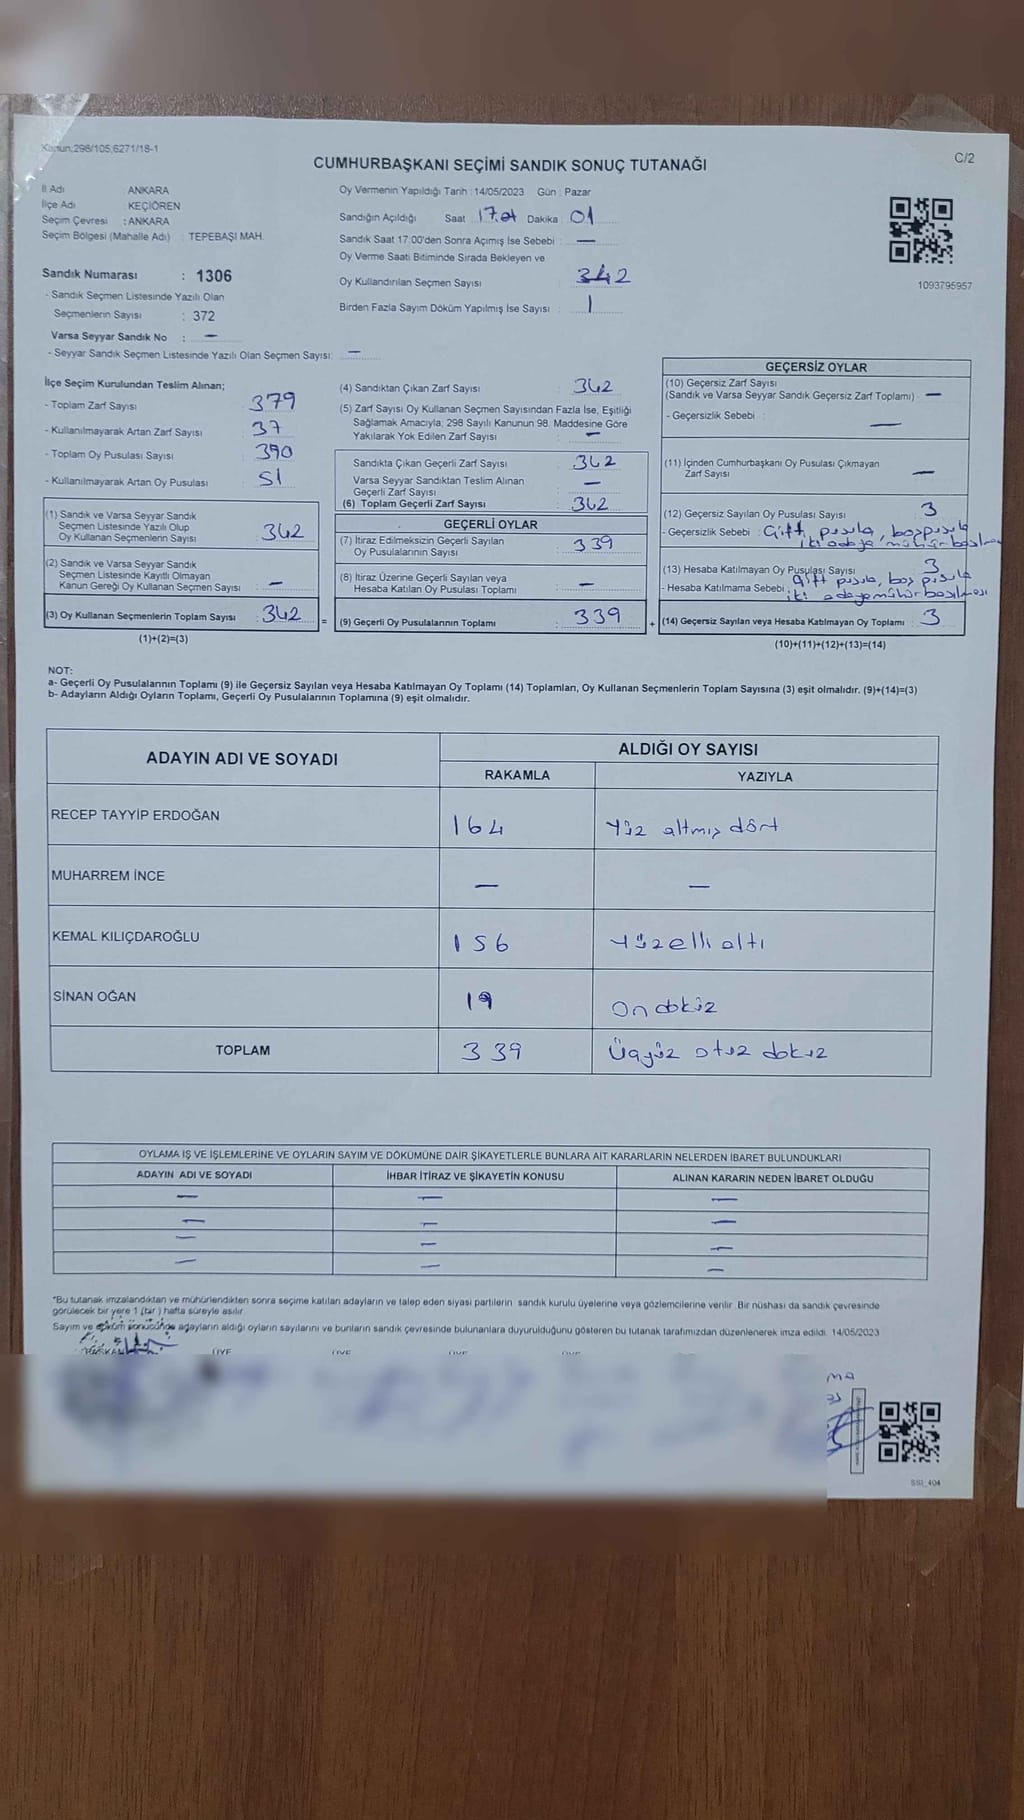 Kanun;298/105,6271/18-1
CUMHURBAŞKANI SEÇİMİ SANDIK SONUÇ TUTANAĞI
C/2
İl Adı ANKARA
İlçe Adı KEÇİÖREN
Seçim Çevresi : ANKARA
Seçim Bölgesi (Mahalle Adı) : TEPEBAŞI MAH.
Oy Vermenin Yapıldığı Tarih : 14/05/2023 Gün : Pazar
Sandığın Açıldığı Saat : 17. Dakika : 01
Sandık Saat 17:00'den Sonra Açımış İse Sebebi : —
Oy Verme Saati Bitiminde Sırada Bekleyen ve
Oy Kullandırılan Seçmen Sayısı : 342
Birden Fazla Sayım Döküm Yapılmış İse Sayısı : 1
1093795957
Sandık Numarası : 1306
- Sandık Seçmen Listesinde Yazılı Olan
Seçmenlerin Sayısı : 372
Varsa Seyyar Sandık No : —
- Seyyar Sandık Seçmen Listesinde Yazılı Olan Seçmen Sayısı: —
İlçe Seçim Kurulundan Teslim Alınan;
- Toplam Zarf Sayısı : 379
- Kullanılmayarak Artan Zarf Sayısı : 37
- Toplam Oy Pusulası Sayısı : 390
- Kullanılmayarak Artan Oy Pusulası : 51
(1) Sandık ve Varsa Seyyar Sandık
Seçmen Listesinde Yazılı Olup
Oy Kullanan Seçmenlerin Sayısı : 342
(2) Sandık ve Varsa Seyyar Sandık
Seçmen Listesinde Kayıtlı Olmayan
Kanun Gereği Oy Kullanan Seçmen Sayısı : —
(3) Oy Kullanan Seçmenlerin Toplam Sayısı : 342 =
(1)+(2)=(3)
(4) Sandıktan Çıkan Zarf Sayısı : 342
(5) Zarf Sayısı Oy Kullanan Seçmen Sayısından Fazla İse, Eşitliği
Sağlamak Amacıyla; 298 Sayılı Kanunun 98. Maddesine Göre
Yakılarak Yok Edilen Zarf Sayısı : —
Sandıkta Çıkan Geçerli Zarf Sayısı : 342
Varsa Seyyar Sandıktan Teslim Alınan
Geçerli Zarf Sayısı : —
(6) Toplam Geçerli Zarf Sayısı : 342
GEÇERLİ OYLAR
(7) İtiraz Edilmeksizin Geçerli Sayılan
Oy Pusulalarının Sayısı : 339
(8) İtiraz Üzerine Geçerli Sayılan veya
Hesaba Katılan Oy Pusulası Toplamı : —
(9) Geçerli Oy Pusulalarının Toplamı : 339 +
GEÇERSİZ OYLAR
(10) Geçersiz Zarf Sayısı
(Sandık ve Varsa Seyyar Sandık Geçersiz Zarf Toplamı) : —
- Geçersizlik Sebebi : —
(11) İçinden Cumhurbaşkanı Oy Pusulası Çıkmayan
Zarf Sayısı : —
(12) Geçersiz Sayılan Oy Pusulası Sayısı : 3
- Geçersizlik Sebebi : Çift pusula, boş pusula
iki adaya mühür basılması
(13) Hesaba Katılmayan Oy Pusulası Sayısı : 3
Çift pusula, boş pusula
- Hesaba Katılmama Sebebi : iki adaya mühür basılması
(14) Geçersiz Sayılan veya Hesaba Katılmayan Oy Toplamı : 3
(10)+(11)+(12)+(13)=(14)
NOT:
a- Geçerli Oy Pusulalarının Toplamı (9) ile Geçersiz Sayılan veya Hesaba Katılmayan Oy Toplamı (14) Toplamları, Oy Kullanan Seçmenlerin Toplam Sayısına (3) eşit olmalıdır. (9)+(14)=(3)
b- Adayların Aldığı Oyların Toplamı, Geçerli Oy Pusulalarının Toplamına (9) eşit olmalıdır.
ADAYIN ADI VE SOYADI
ALDIĞI OY SAYISI
RAKAMLA YAZIYLA
RECEP TAYYİP ERDOĞAN 164 Yüz altmış dört
MUHARREM İNCE — —
KEMAL KILIÇDAROĞLU 156 Yüzelli altı
SİNAN OĞAN 19 On dokuz
TOPLAM 339 Üçyüz otuz dokuz
OYLAMA İŞ VE İŞLEMLERİNE VE OYLARIN SAYIM VE DÖKÜMÜNE DAİR ŞİKAYETLERLE BUNLARA AİT KARARLARIN NELERDEN İBARET BULUNDUKLARI
ADAYIN ADI VE SOYADI İHBAR İTİRAZ VE ŞİKAYETİN KONUSU ALINAN KARARIN NEDEN İBARET OLDUĞU
— — —
— — —
— — —
— — —
*Bu tutanak imzalandıktan ve mühürlendikten sonra seçime katılan adayların ve talep eden siyasi partilerin sandık kurulu üyelerine veya gözlemcilerine verilir. Bir nüshası da sandık çevresinde
görülecek bir yere 1 (bir) hafta süreyle asılır.
Sayım ve döküm sonucunda adayların aldığı oyların sayılarını ve bunların sandık çevresinde bulunanlara duyurulduğunu gösteren bu tutanak tarafımızdan düzenlenerek imza edildi. 14/05/2023
BAŞKAN ÜYE ÜYE ÜYE ÜYE
SSI_404